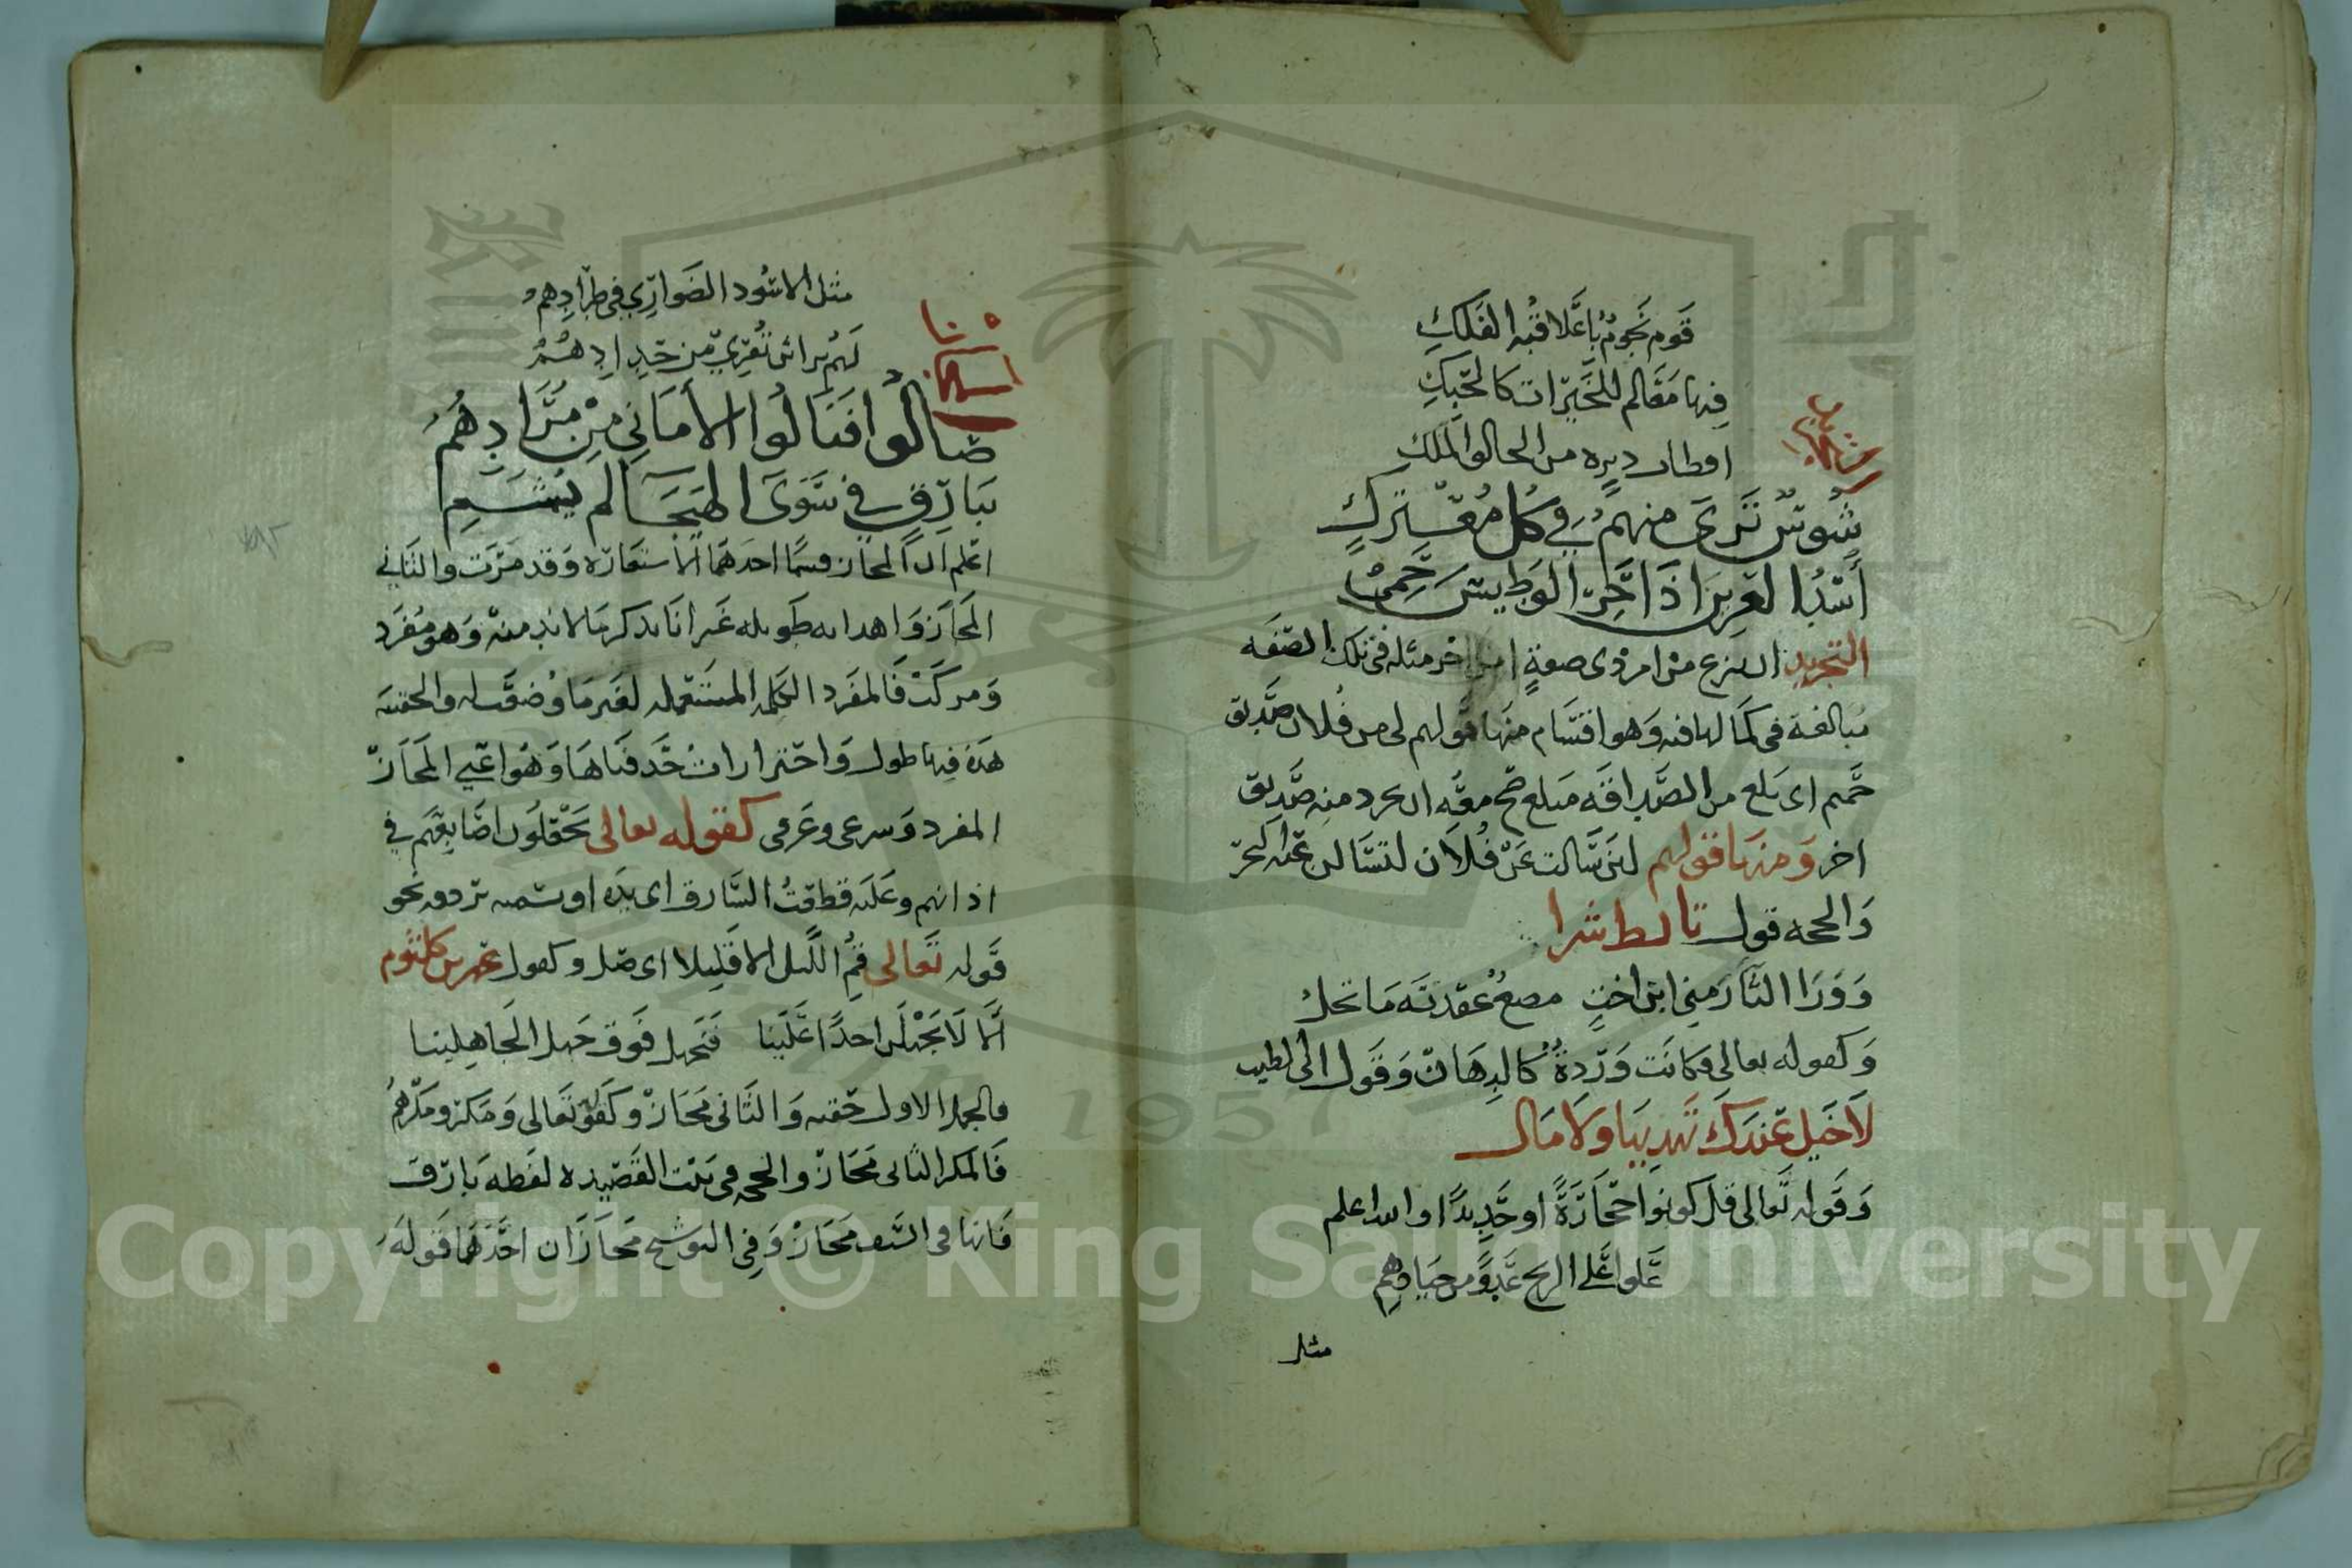 قَوم نجومٌ بأعلا قبة الفَلكِ
فيها مَعَالم للخَيرات كالحبكِ
اقطاب ديره من الحالق الملكِ
شُوسٌ تَرى منهمُ في كل مُعْتركٍ
أُسْدُ العرين اذا حَرّ الوطيس حَمِيْ
التجريد ان ينتزع من امر ذى صفةٍ امر اخر مثله فى تلك الصفه
مبالغة فى كمالها فيه وهو اقسام منها قولهم لى من فُلان صديق
حميم اى بلغ من الصداقه مبلغ صح معه ان يجرد منه صديق
اخر ومنها قولهم لئن سالت عن فُلان لتسالن عنه البحر
والحجه قول تابط شرا
وَوَرَا الثَّأر منى ابن اختٍ مصعٌ عقدته ما تحلُ
وكقوله تعالى فكانت وَردةً كالدهان وقول ابى الطيب
لا خيل عندك تهديها ولا مال
وقوله تعالى قل كونوا حجارةً او حديدًا والله اعلم
عَلَوا على الريح عَدوًا من جيادهمِ
مثل
مثل الاسُود الضواري في طرادهمُ
لهم براثن تفري من حدادِهمُ
صالُوا فنالُوا الأمَاني مِنْ مُرَادِهمُ
ببارقٍ في سَوَى الهيجَا لم يُشَمِ
اعلم ان المجاز قسمان احدهما الاستعاره وقد مرت والثاني
المجاز واهدابه طويله غير انا نذكر ما لا بد منه وهو مفرد
ومركب فالمفرد الكلمه المستعمله لغير ما وُضعت له والحقيقه
هذه فيها طول واحترازات حذفناها وهو اعني المجاز
المفرد وشرعى وعرفى كقوله تعالى يجعلون اصابعهم في
اذانهم وعليه قطعتُ السارق اى يده او تسميه تردفه نحو
قوله تعالى قمِ الليل الا قليلا اى صل وكقول عمرو بن كلثوم
ألا لا يجهلن احدًا علينا فنجهل فوق جهل الجاهلينا
فالجهل الاول حقيقه والثانى مجاز وكقوله تعالى ومكروا ومكرهم
فالمكر الثانى مجاز والحجه فى بيت القصيده لفظه بارق
فانها فى السيف مجاز وفي التوشيح مجازان احدهما قوله